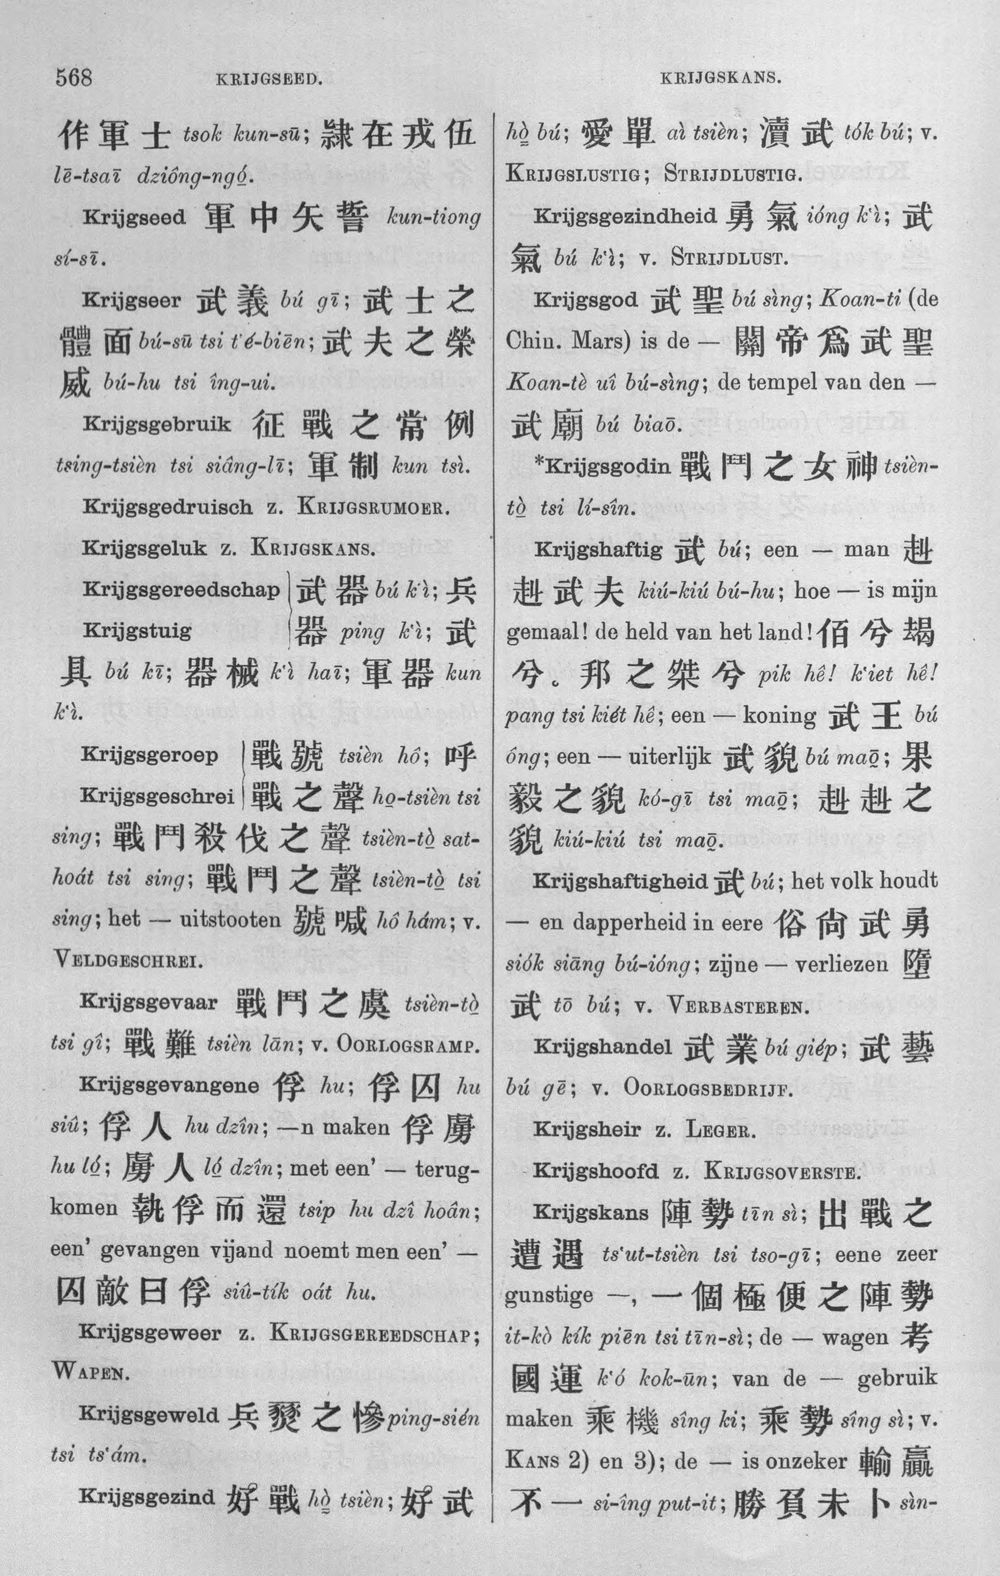 568
KRIJGSEED.
KRIJGSKANS.
作軍士 tsok kun-sū; 隸在戎伍
lē-tsaī dzióng-ngó͘.
Krijgseed 軍中矢誓 kun-tiong
sí-sī.
Krijgseer 武義 bú gī; 武士之
體面 bú-sū tsi t'é-biēn; 武夫之榮
威 bú-hu tsi îng-ui.
Krijgsgebruik 征戰之常例
tsing-tsièn tsi siâng-lī; 軍制 kun tsì.
Krijgsgedruisch z. KRIJGSRUMOER.
Krijgsgeluk z. KRIJGSKANS.
Krijgsgereedschap 武器 bú k'ì; 兵
Krijgstuig 器 ping k'ì; 武
具 bú kī; 器械 k'ì haī; 軍器 kun
k'ì.
Krijgsgeroep 戰號 tsièn hô; 呼
Krijgsgeschrei 戰之聲 ho̱-tsièn tsi
sing; 戰鬥殺伐之聲 tsièn-tò̱ sat-
hoát tsi sing; 戰鬥之聲 tsièn-tò̱ tsi
sing; het — uitstooten 號喊 hô hám; v.
VELDGESCHREI.
Krijgsgevaar 戰鬥之虞 tsièn-tò̱
tsi gî; 戰難 tsièn lān; v. OORLOGSRAMP.
Krijgsgevangene 俘 hu; 俘囚 hu
siû; 俘人 hu dzîn; —n maken 俘虜
hu ló̱; 虜人 ló̱ dzîn; met een' — terug-
komen 執俘而還 tsip hu dzî hoân;
een' gevangen vijand noemt men een' —
囚敵曰俘 siû-tík oát hu.
Krijgsgeweer z. KRIJGSGEREEDSCHAP;
WAPEN.
Krijgsgeweld 兵燹之慘 ping-sién
tsi ts'ám.
Krijgsgezind 好戰 hò̱ tsièn; 好武
hò̱ bú; 愛單 aì tsièn; 瀆武 tók bú; v.
KRIJGSLUSTIG; STRIJDLUSTIG.
Krijgsgezindheid 勇氣 ióng k'ì; 武
氣 bú k'ì; v. STRIJDLUST.
Krijgsgod 武聖 bú sìng; Koan-ti (de
Chin. Mars) is de — 關帝爲武聖
Koan-tè uî bú-sìng; de tempel van den —
武廟 bú biaō.
*Krijgsgodin 戰鬥之女神 tsièn-
tò̱ tsi lí-sîn.
Krijgshaftig 武 bú; een — man 赳
赳武夫 kiú-kiú bú-hu; hoe — is mijn
gemaal! de held van het land! 佰兮朅
兮。邦之桀兮 pik hê! k'iet hê!
pang tsi kiét hê; een — koning 武王 bú
óng; een — uiterlijk 武貌 bú maō̱; 果
毅之貌 kó-gī tsi maō̱; 赳赳之
貌 kiú-kiú tsi maō̱.
Krijgshaftigheid 武 bú; het volk houdt
— en dapperheid in eere 俗尙武勇
siók siāng bú-ióng; zijne — verliezen 墮
武 tō bú; v. VERBASTEREN.
Krijgshandel 武業 bú giép; 武藝
bú gē; v. OORLOGSBEDRIJF.
Krijgsheir z. LEGER.
Krijgshoofd z. KRIJGSOVERSTE.
Krijgskans 陣勢 tīn sì; 出戰之
遭遇 ts'ut-tsièn tsi tso-gī; eene zeer
gunstige —, 一個極便之陣勢
it-kò kík piēn tsi tīn-sì; de — wagen 考
國運 k'ó kok-ūn; van de — gebruik
maken 乘機 sîng ki; 乘勢 sîng sì; v.
KANS 2) en 3); de — is onzeker 輸贏
不一 si-îng put-it; 勝負未卜 sìn-